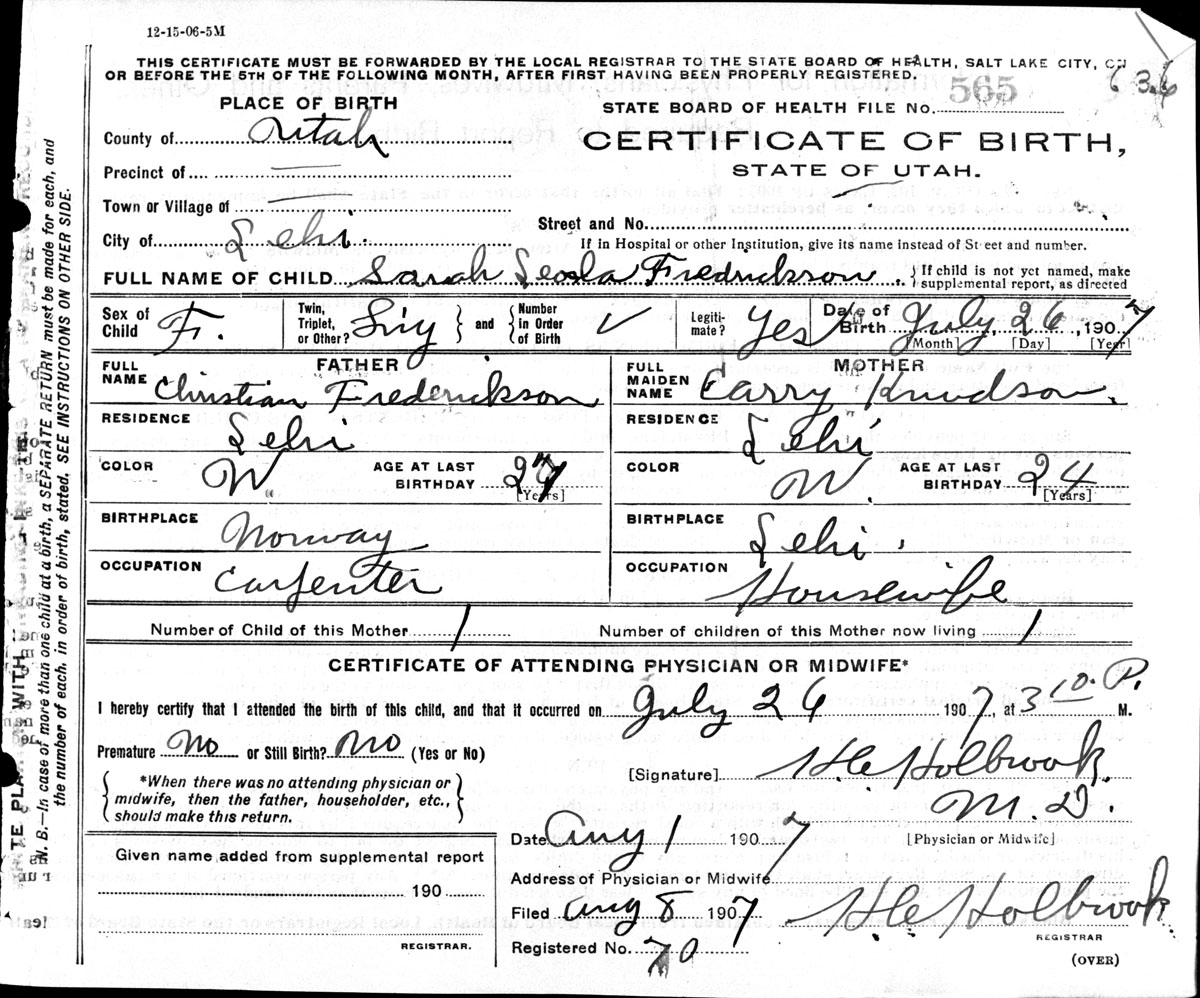 12-15-06-5M
THIS CERTIFICATE MUST BE FORWARDED BY THE LOCAL REGISTRAR TO THE STATE BOARD OF HEALTH, SALT LAKE CITY, ON
OR BEFORE THE 5TH OF THE FOLLOWING MONTH, AFTER FIRST HAVING BEEN PROPERLY REGISTERED.
636
PLACE OF BIRTH
STATE BOARD OF HEALTH FILE NO. 565
County of Utah
CERTIFICATE OF BIRTH,
Precinct of
STATE OF UTAH.
Town or Village of
Street and No.
City of Lehi.
If in Hospital or other Institution, give its name instead of Street and number.
FULL NAME OF CHILD Sarah Leola Fredrickson. If child is not yet named, make
supplemental report, as directed
Sex of Child F. Twin, Triplet, or Other? Sing and Number in Order of Birth ✓ Legiti-mate? Yes Date of Birth July 26, 1907
[Month] [Day] [Year]
FATHER MOTHER
FULL NAME Christian Frederickson FULL MAIDEN NAME Carry Knudson.
RESIDENCE Lehi RESIDENCE Lehi
COLOR W AGE AT LAST BIRTHDAY 27 [Years] COLOR W. AGE AT LAST BIRTHDAY 24 [Years]
BIRTHPLACE Norway BIRTHPLACE Lehi.
OCCUPATION Carpenter OCCUPATION Housewife
Number of Child of this Mother 1 Number of children of this Mother now living 1
CERTIFICATE OF ATTENDING PHYSICIAN OR MIDWIFE*
I hereby certify that I attended the birth of this child, and that it occurred on July 26 1907, at 3 10. P. M.
Premature No or Still Birth? No (Yes or No)
[Signature] H.C. Holbrook.
M.D.
[Physician or Midwife]
*When there was no attending physician or
midwife, then the father, householder, etc.,
should make this return.
Date Aug 1 1907
Given name added from supplemental report
190
REGISTRAR.
Address of Physician or Midwife
Filed Aug 8 1907 H.C. Holbrook
REGISTRAR
Registered No. 70
(OVER)
N. B.—In case of more than one child at a birth, a SEPARATE RETURN must be made for each, and
the number of each, in order of birth, stated, SEE INSTRUCTIONS ON OTHER SIDE.